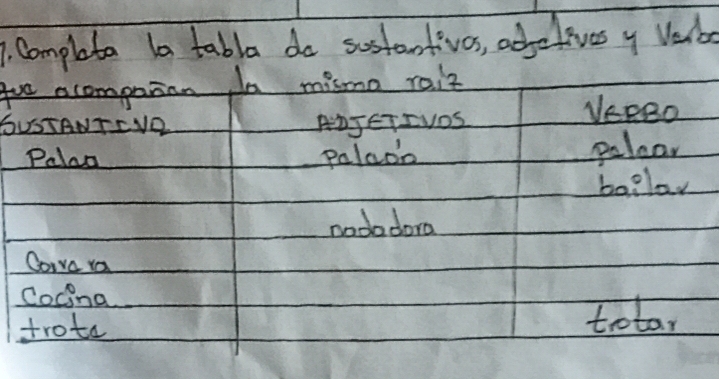 7. Completa la tabla de sustantivos, adjetivos y Verbo
que acompañan la misma raíz
SUSTANTIVO ADJETIVOS VERBO
Pelea peleón pelear
bailar
nadadora
Carrera
Cocina
trote trotar